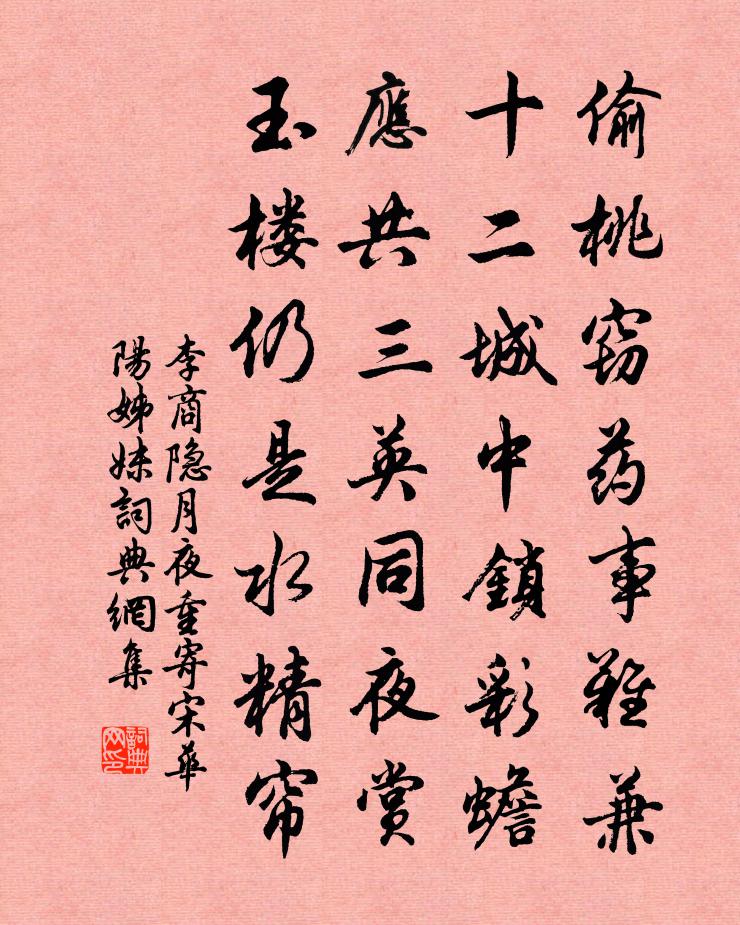 偷桃窃药事难兼
十二城中鎖彩蟾
應共三英同夜赏
玉楼仍是水精帘
李商隐月夜重寄宋華
陽姊妹詞典網集
詞典网印